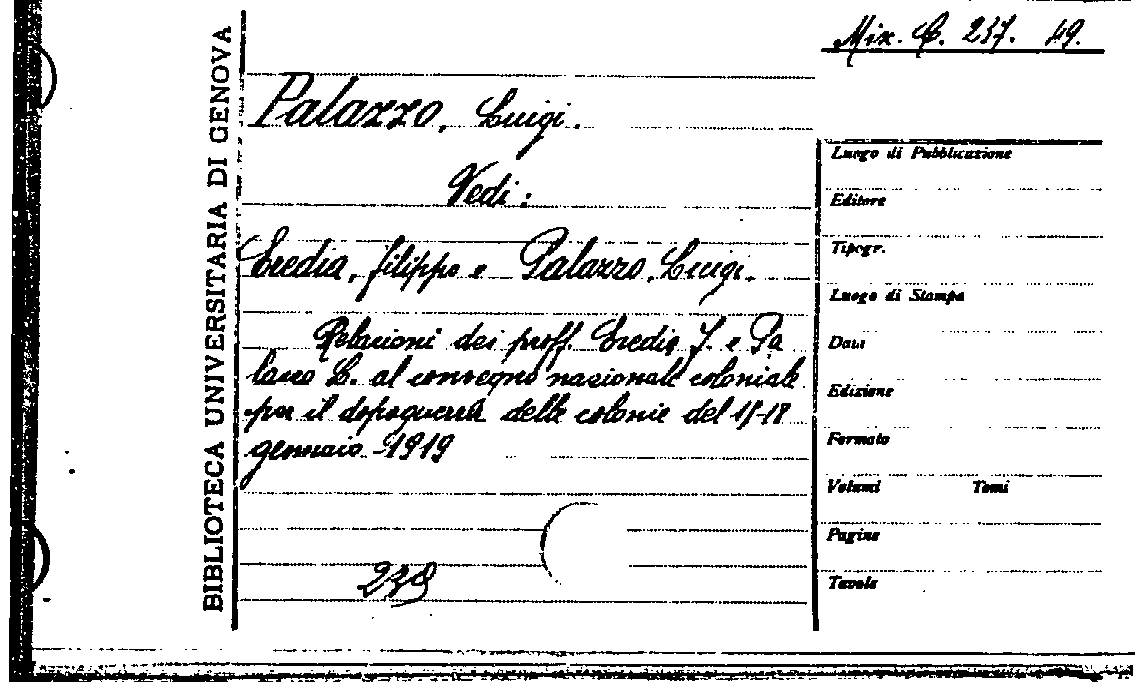 BIBLIOTECA UNIVERSITARIA DI GENOVA
Mix. C. 237. 49.
Palazzo, Luigi.
Vedi:
Eredia, Filippo e Palazzo, Luigi.
Relazioni dei proff. Eredia F. e Pa
lazzo L. al convegno nazionale coloniale
per il dopoguerra delle colonie del 15-18
gennaio 1919
239
Luogo di Pubblicazione
Editore
Tipogr.
Luogo di Stampa
Data
Edizione
Formato
Volumi Tomi
Pagine
Tavole